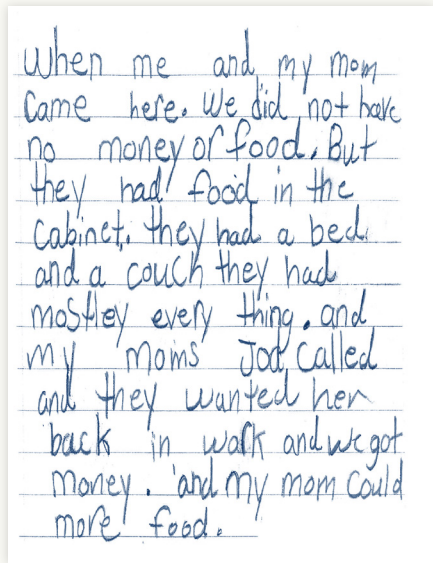 When me and my mom
Came here. We did not have
no money or food. But
they had food in the
Cabinet. they had a bed
and a couch they had
mostley every thing. and
my moms Jod Called
and they wanted her
back in walk and we got
money. and my mom Could
more food.